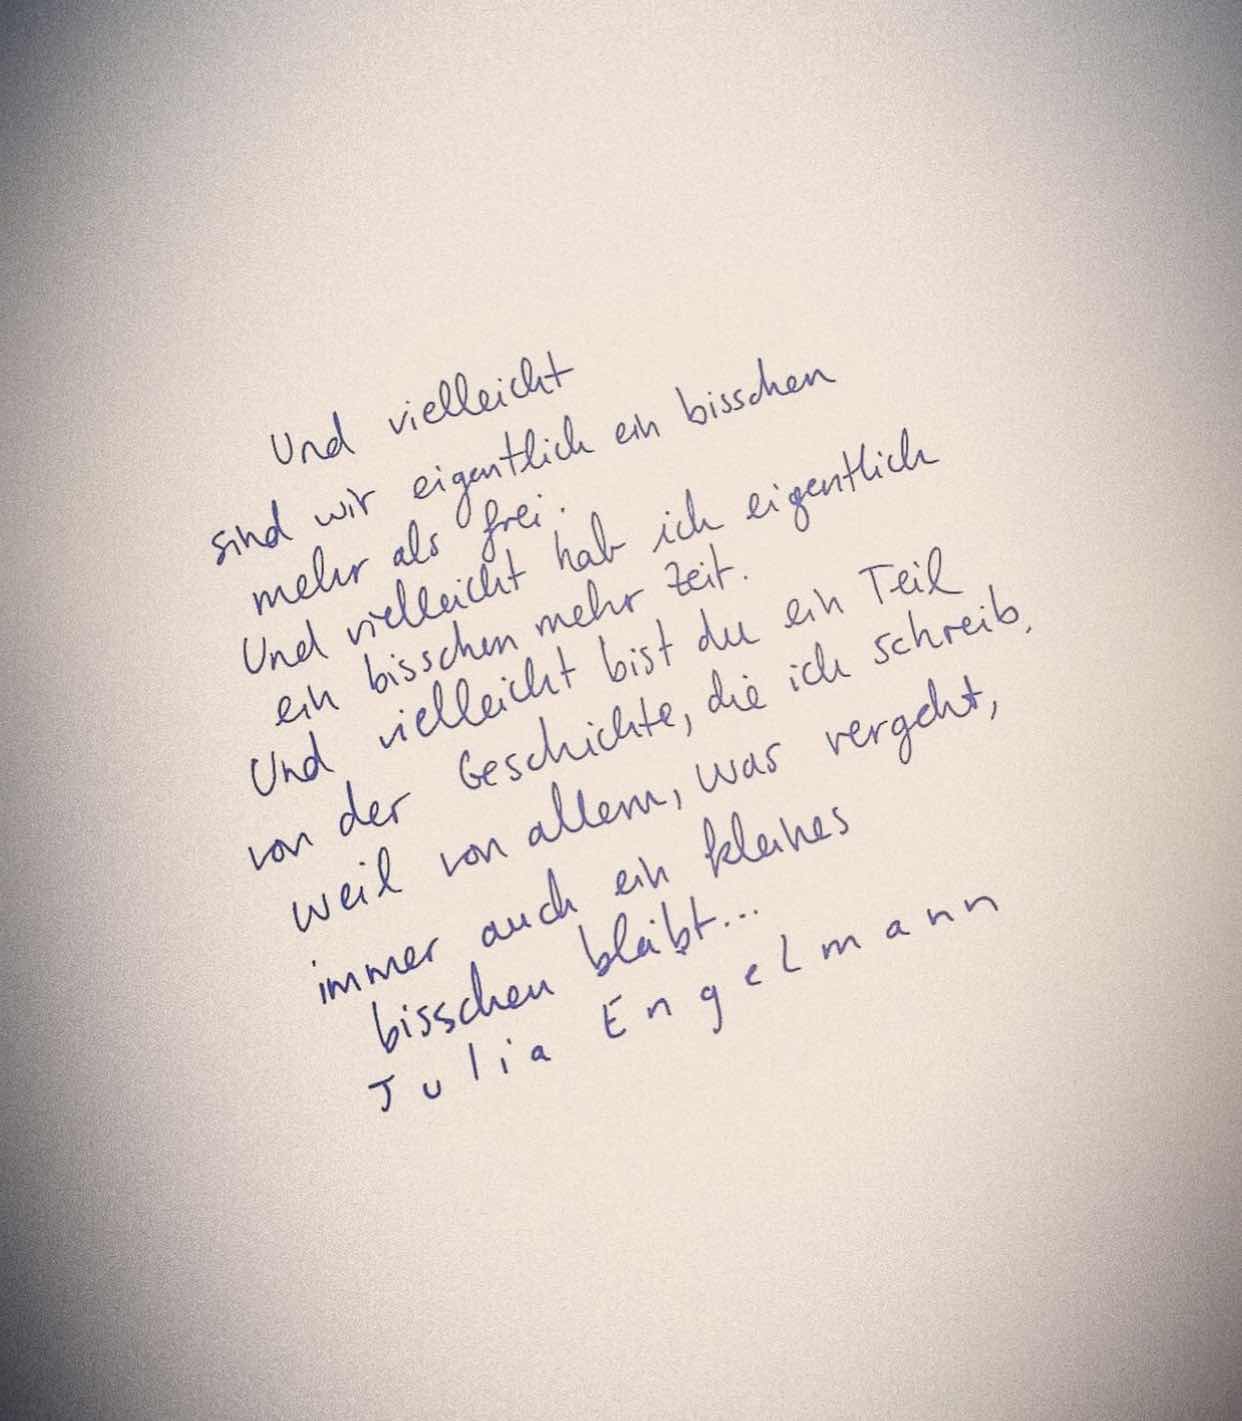 Und vielleicht
sind wir eigentlich ein bisschen
mehr als frei.
Und vielleicht hab ich eigentlich
ein bisschen mehr Zeit.
Und vielleicht bist du ein Teil
von der Geschichte, die ich schreib,
weil von allem, was vergeht,
immer auch ein kleines
bisschen bleibt...
Julia Engelmann